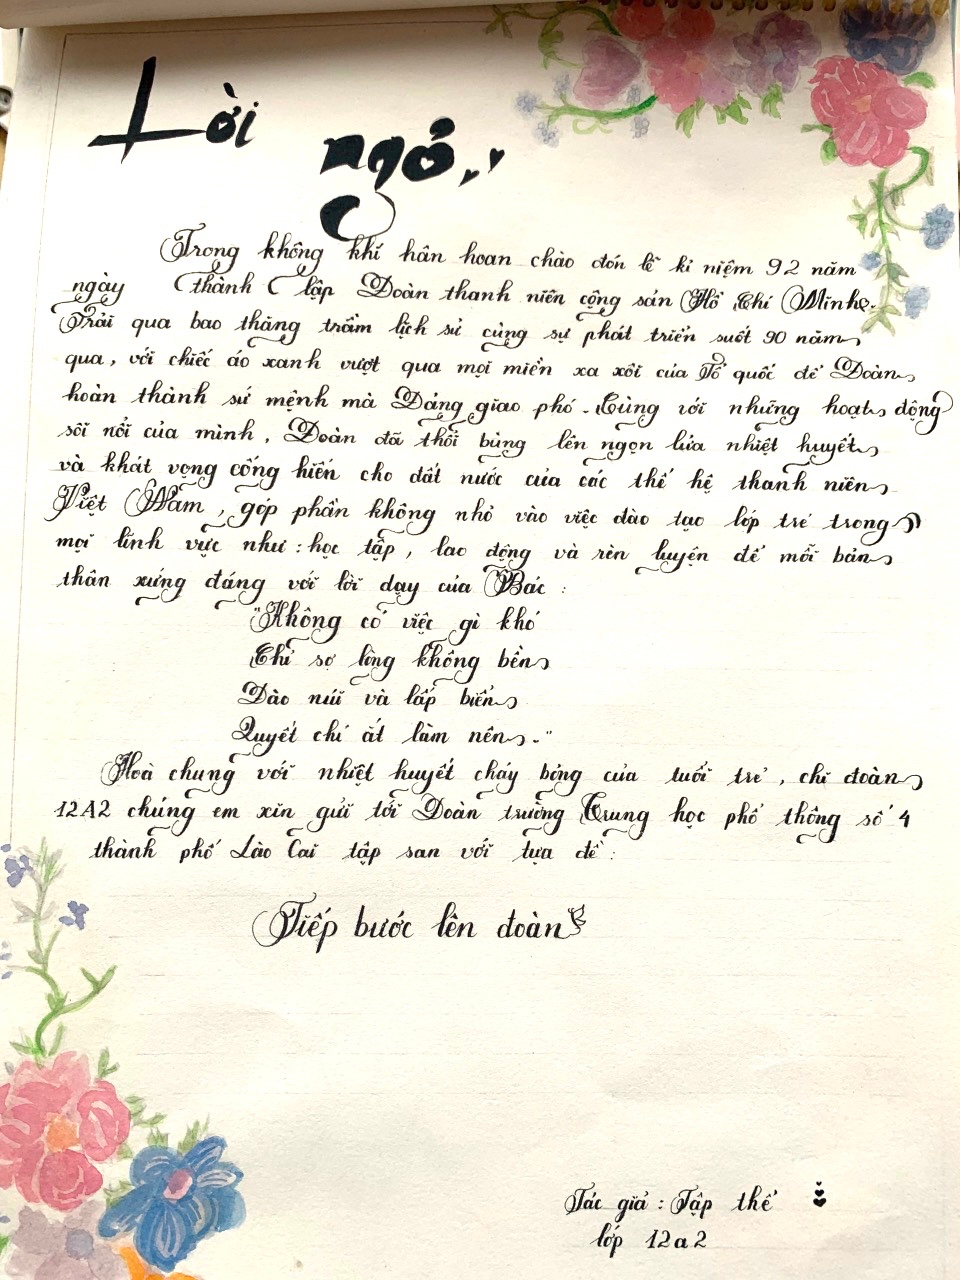 Lời
ngỏ
Trong không khí hân hoan chào đón lễ kỉ niệm 92 năm
ngày thành lập Đoàn thanh niên cộng sản Hồ Chí Minh.
Trải qua bao thăng trầm lịch sử cùng sự phát triển suốt 90 năm
qua, với chiếc áo xanh vượt qua mọi miền xa xôi của Tổ quốc để Đoàn
hoàn thành sứ mệnh mà Đảng giao phó. Cùng với những hoạt động
sôi nổi của mình, Đoàn đã thổi bùng lên ngọn lửa nhiệt huyết
và khát vọng cống hiến cho đất nước của các thế hệ thanh niên
Việt Nam, góp phần không nhỏ vào việc đào tạo lớp trẻ trong
mọi lĩnh vực như: học tập, lao động và rèn luyện để mỗi bản
thân xứng đáng với lời dạy của Bác:
"Không có việc gì khó
Chỉ sợ lòng không bền
Đào núi và lấp biển
Quyết chí ắt làm nên."
Hoà chung với nhiệt huyết cháy bỏng của tuổi trẻ, chi đoàn
12A2 chúng em xin gửi tới Đoàn trường Trung học phổ thông số 4
thành phố Lào Cai tập san với tựa đề:
Tiếp bước lên đoàn
Tác giả: Tập thể
lớp 12a2